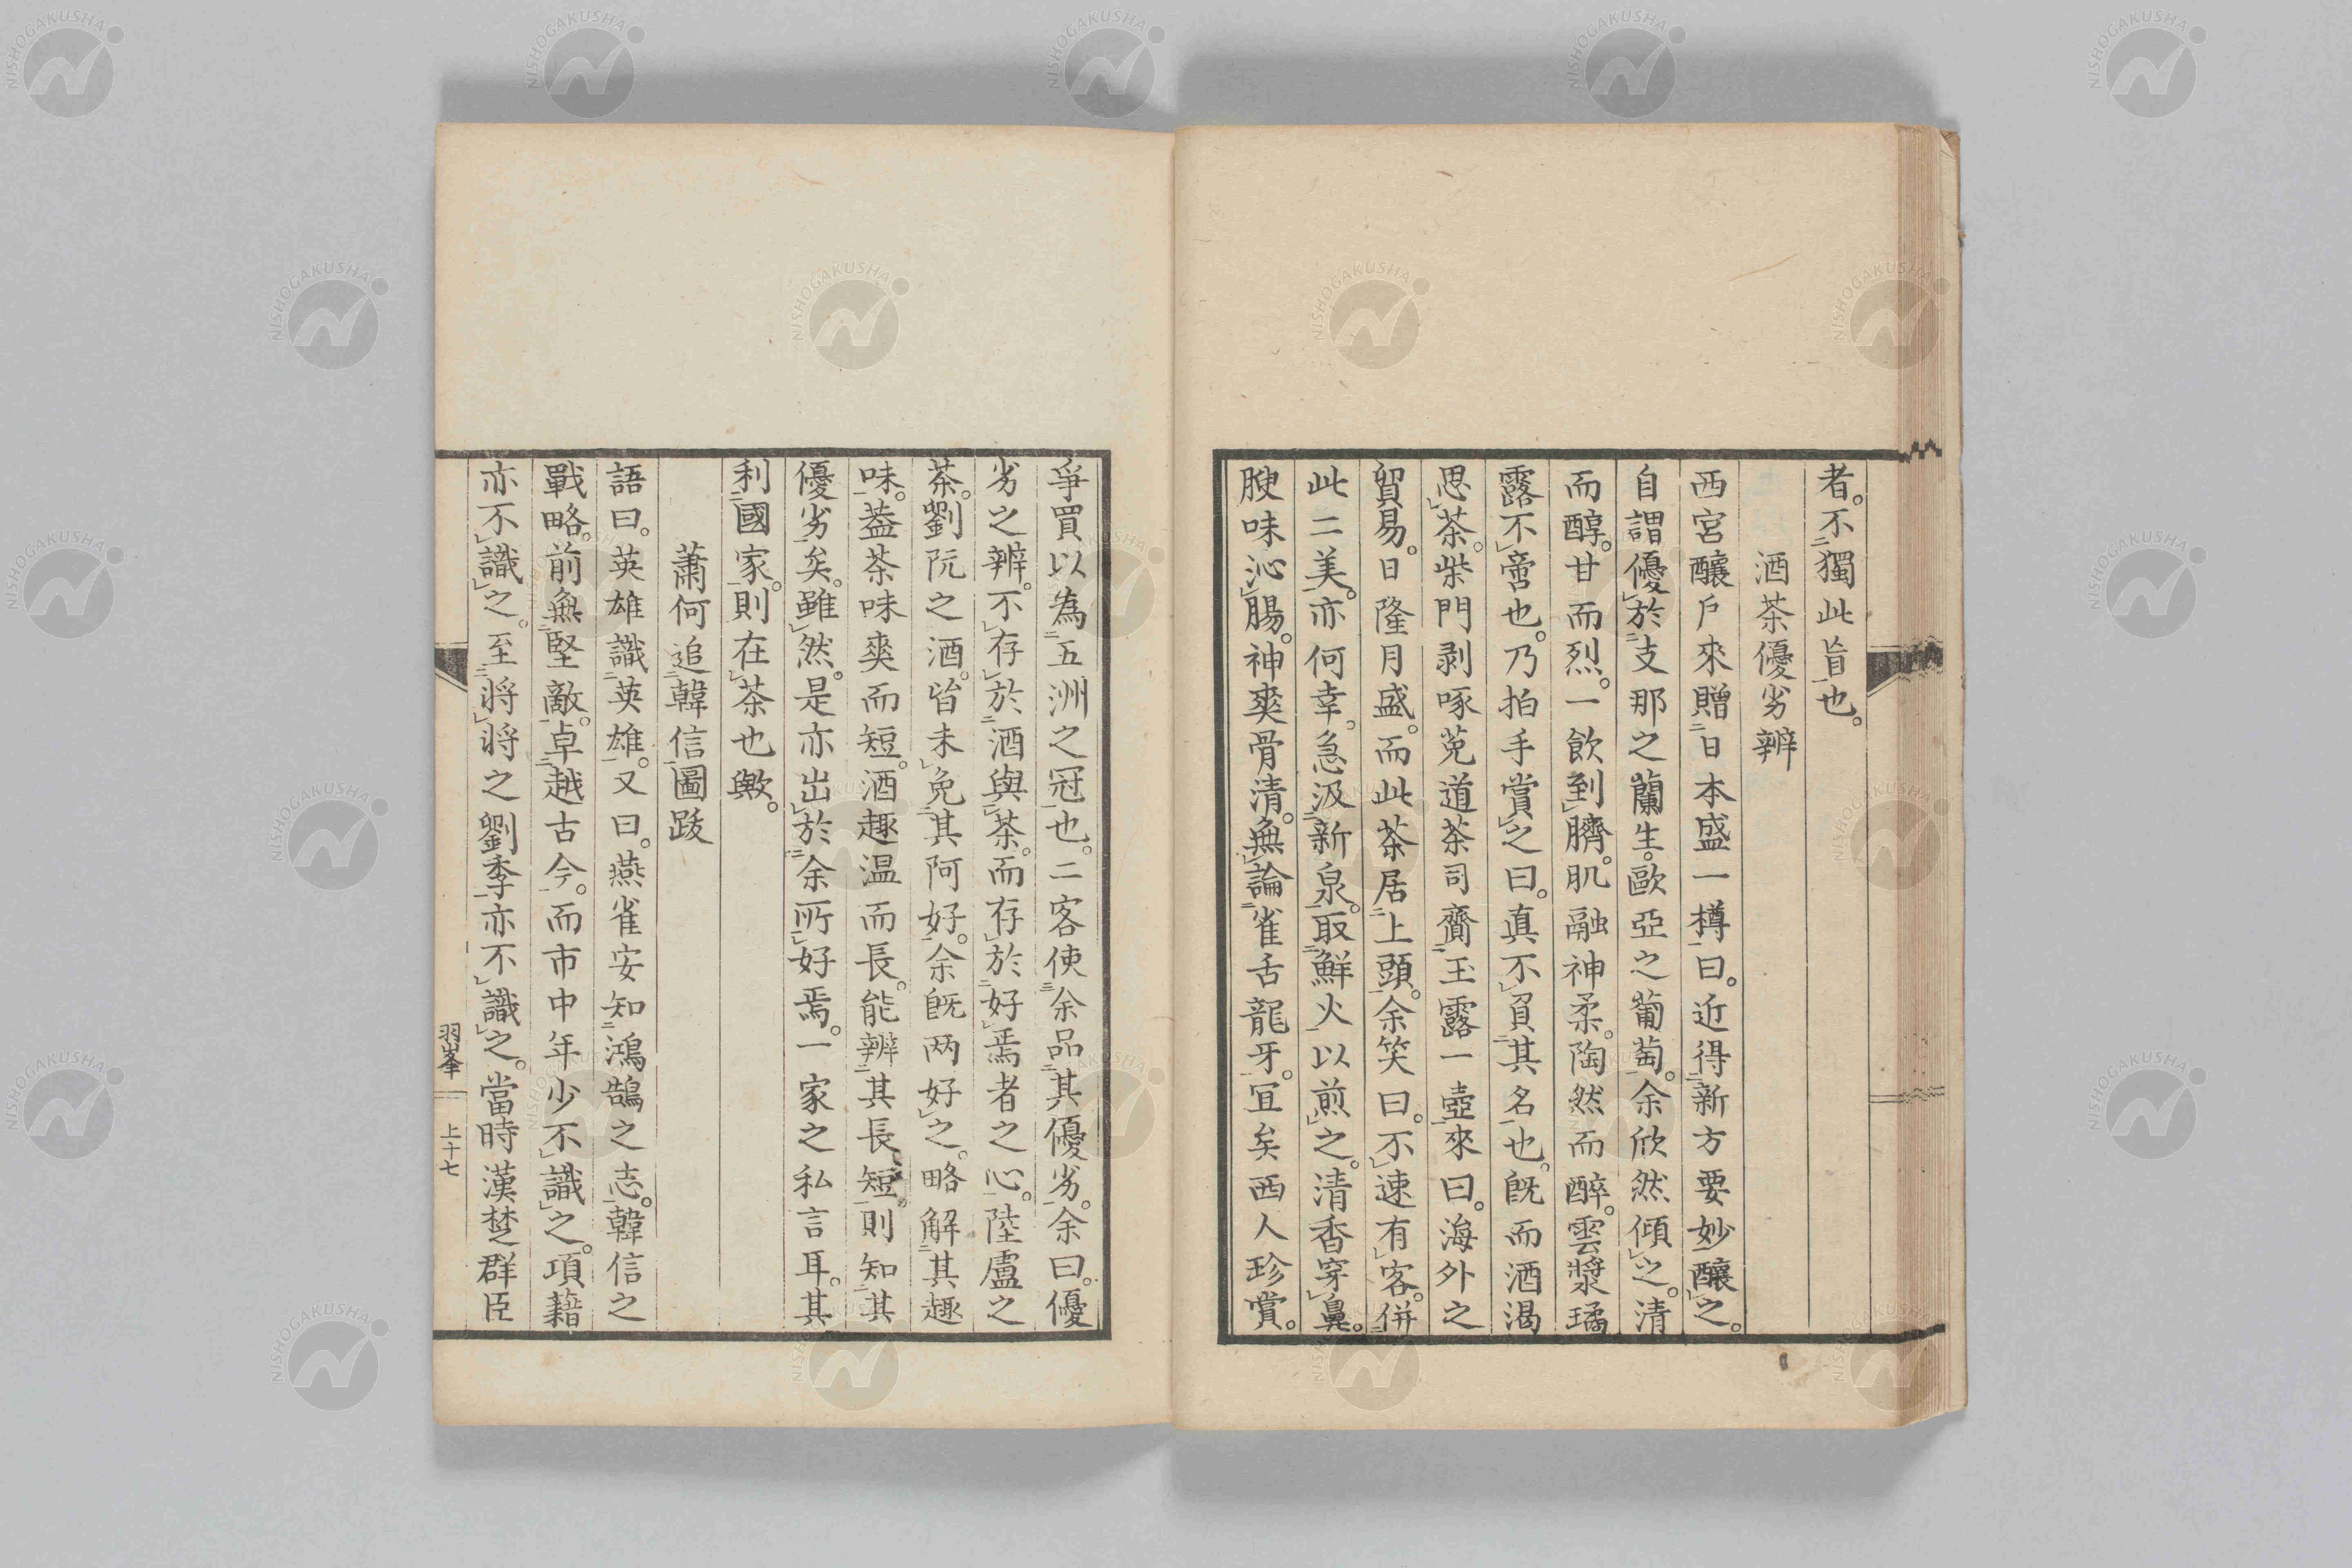 者。不獨此旨也。
酒茶優劣辨
西宮釀戶來贈日本盛一樽曰。近得新方要妙釀之。
自謂優於支那之蘭生。歐亞之葡萄。余欣然傾之。清
而醇。甘而烈。一飲到臍。肌融神柔。陶然而醉。雲漿璚
露不啻也。乃拍手賞之曰。真不負其名也。既而酒渴
思茶。柴門剥啄菟道茶司齎玉露一壺來曰。海外之
貿易。日隆月盛。而此茶居上頭。余笑曰。不速有客。併
此二美。亦何幸。急汲新泉。取鮮火以煎之。清香穿鼻。
腴味沁腸。神爽骨清。無論雀舌龍牙。宜矣西人珍賞。
爭買以為五洲之冠也。二客使余品其優劣。余曰。優
劣之辨。不存於酒與茶。而存於好焉者之心。陸盧之
茶。劉阮之酒。皆未免其阿好。余既两好之。略解其趣
味。葢茶味爽而短。酒趣温而長。能辨其長短。則知其
優劣矣。雖然。是亦出於余所好焉。一家之私言耳。其
利國家。則在茶也歟。
蕭何追韓信圖跋
語曰。英雄識英雄。又曰。燕雀安知鴻鵠之志。韓信之
戰略。前無堅敵。卓越古今。而市中年少不識之。項籍
亦不識之。至將將之劉季亦不識之。當時漢楚群臣
羽峯
上十七
NISHOGAKUSHA